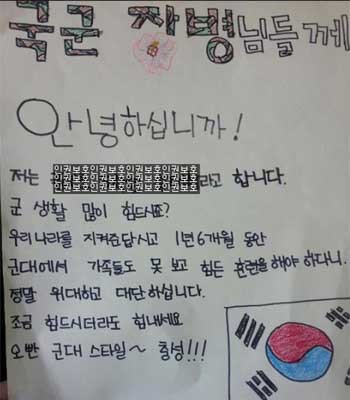 국군 장병님들께
안녕하십니까!
저는 인권보호인권보호인권보호인권보호라고 합니다.
군 생활 많이 힘드시죠?
우리나라를 지켜준답시고 1년 6개월 동안
군대에서 가족들도 못 보고 힘든 훈련을 해야 하다니.
정말 위대하고 대단하십니다.
조금 힘드시더라도 힘내세요
오빤 군대 스타일~ 충성!!!